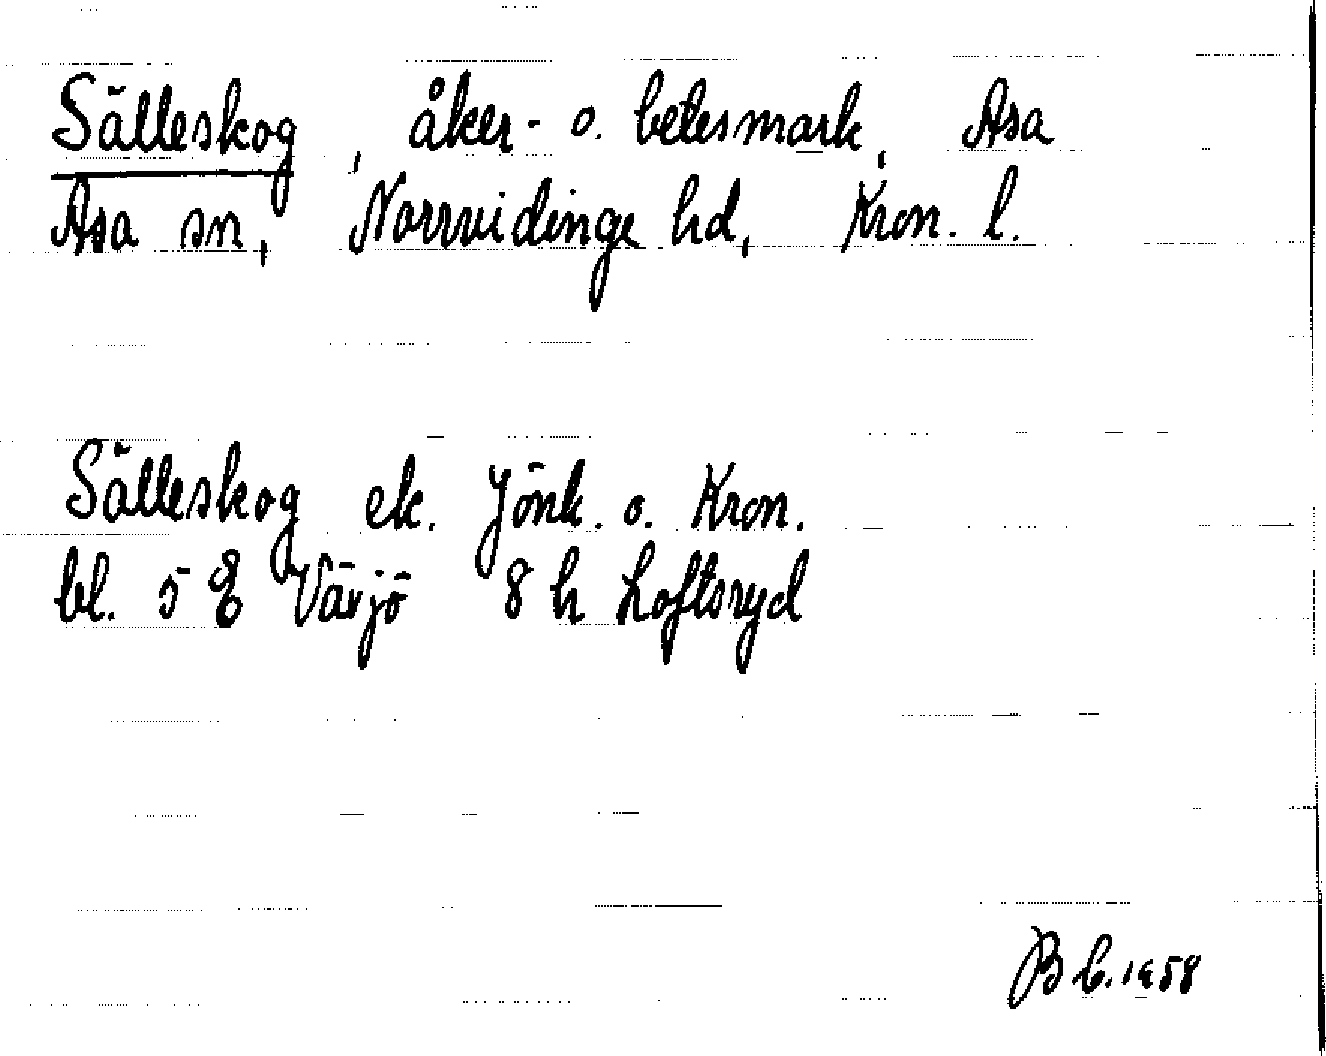 Sälleskog, åker- o. betesmark, Asa
Asa sn, Norrvidinge hd, Kron. l.
Sälleskog ek. Jönk. o. Kron.
bl. 5 E Växjö 8 h Loftsryd
B b. 1958